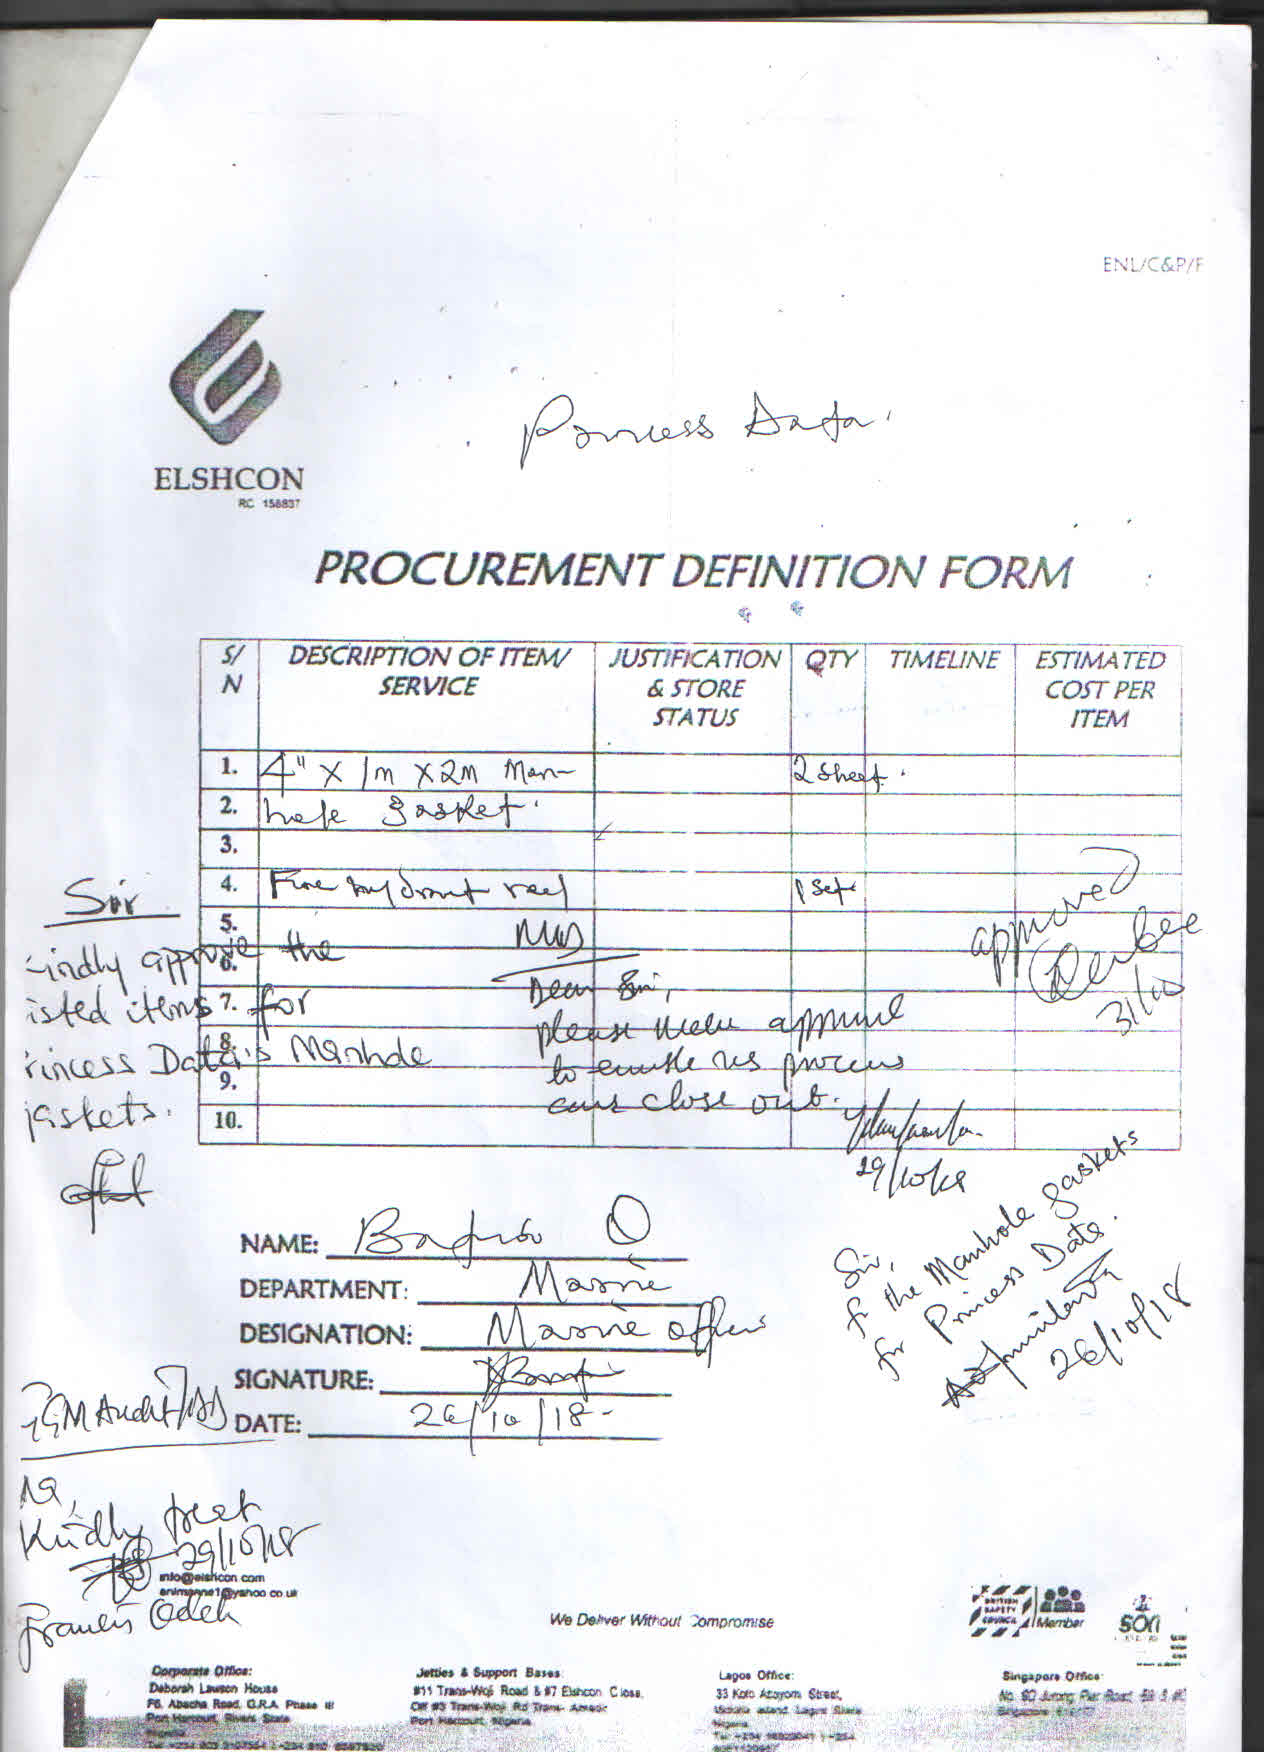 ENL/C&P/F
ELSHCON
RC 156837
Princess Data.
PROCUREMENT DEFINITION FORM
S/N DESCRIPTION OF ITEM/ SERVICE JUSTIFICATION & STORE STATUS QTY TIMELINE ESTIMATED COST PER ITEM
1. 4" X 1m X 2m Man- 2 sheet.
2. hole gasket.
3.
4. Fire hydrant reel 1 set
5.
6.
7.
8.
9.
10.
Sir
kindly approve the
listed items for
Princess Data's Manhole
gaskets.
MD
Dear Sir,
please make approval
to enable us process
and close out.
29/10/18
approved
31/10
Sir,
for the Manhole gaskets
for Princess Data.
26/10/18
NAME: O
DEPARTMENT: Marine
DESIGNATION: Marine officer
SIGNATURE:
DATE: 26/10/18-
GM Audit
Kindly treat
29/10/18
Francis Odeh
info@elshcon.com
enlmarine1@yahoo.co.uk
We Deliver Without Compromise
BRITISH SAFETY COUNCIL Member
SON
Corporate Office:
Deborah Lawson House
F6, Abacha Road, G.R.A. Phase III
Port Harcourt, Rivers State
Jetties & Support Bases:
#11 Trans-Woji Road & #7 Elshcon Close,
Off #3 Trans-Woji Rd Trans- Amadi
Port Harcourt, Nigeria
Lagos Office:
33 Kofo Abayomi Street,
Victoria Island Lagos State
Nigeria
Singapore Office: